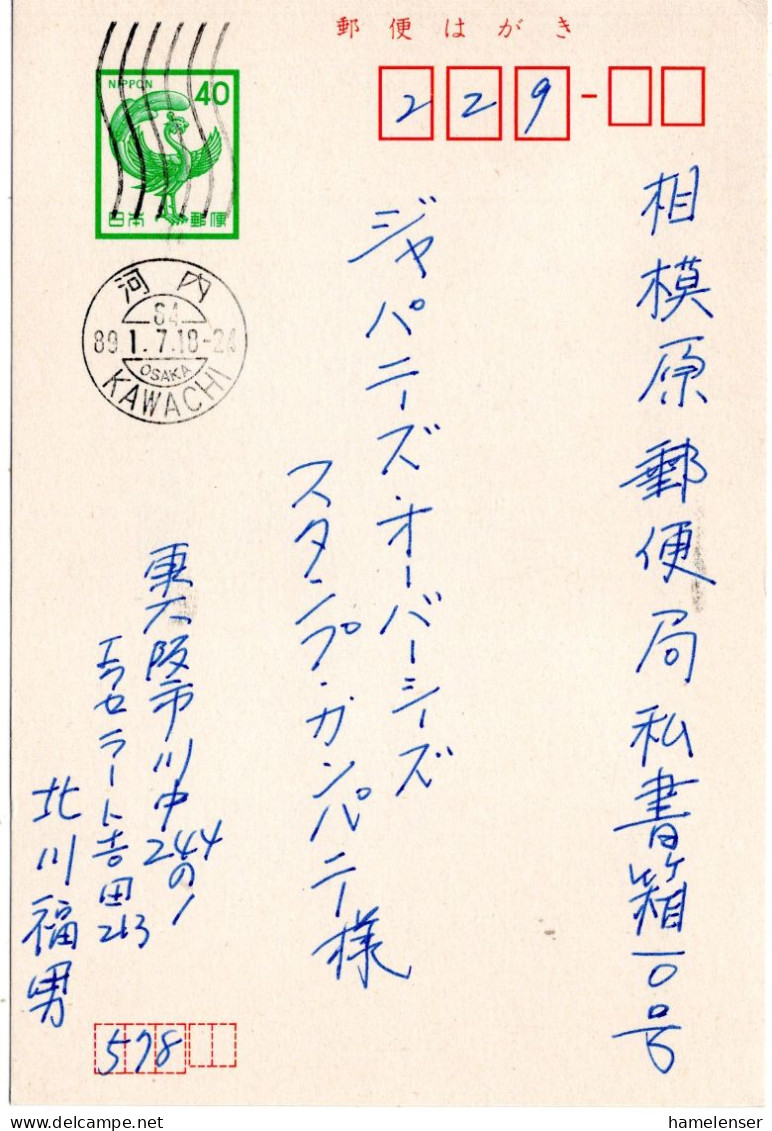 郵便はがき
NIPPON
40
日本郵便
229
相模原郵便局私書箱一〇号
ジャパニーズ・オーバーシーズ
スタンプ・カンパニー様
河内
S4
89 1. 7.18-24
OSAKA
KAWACHI
東大阪市川中244の1
エクセラート吉田213
北川福男
578
hamelenser